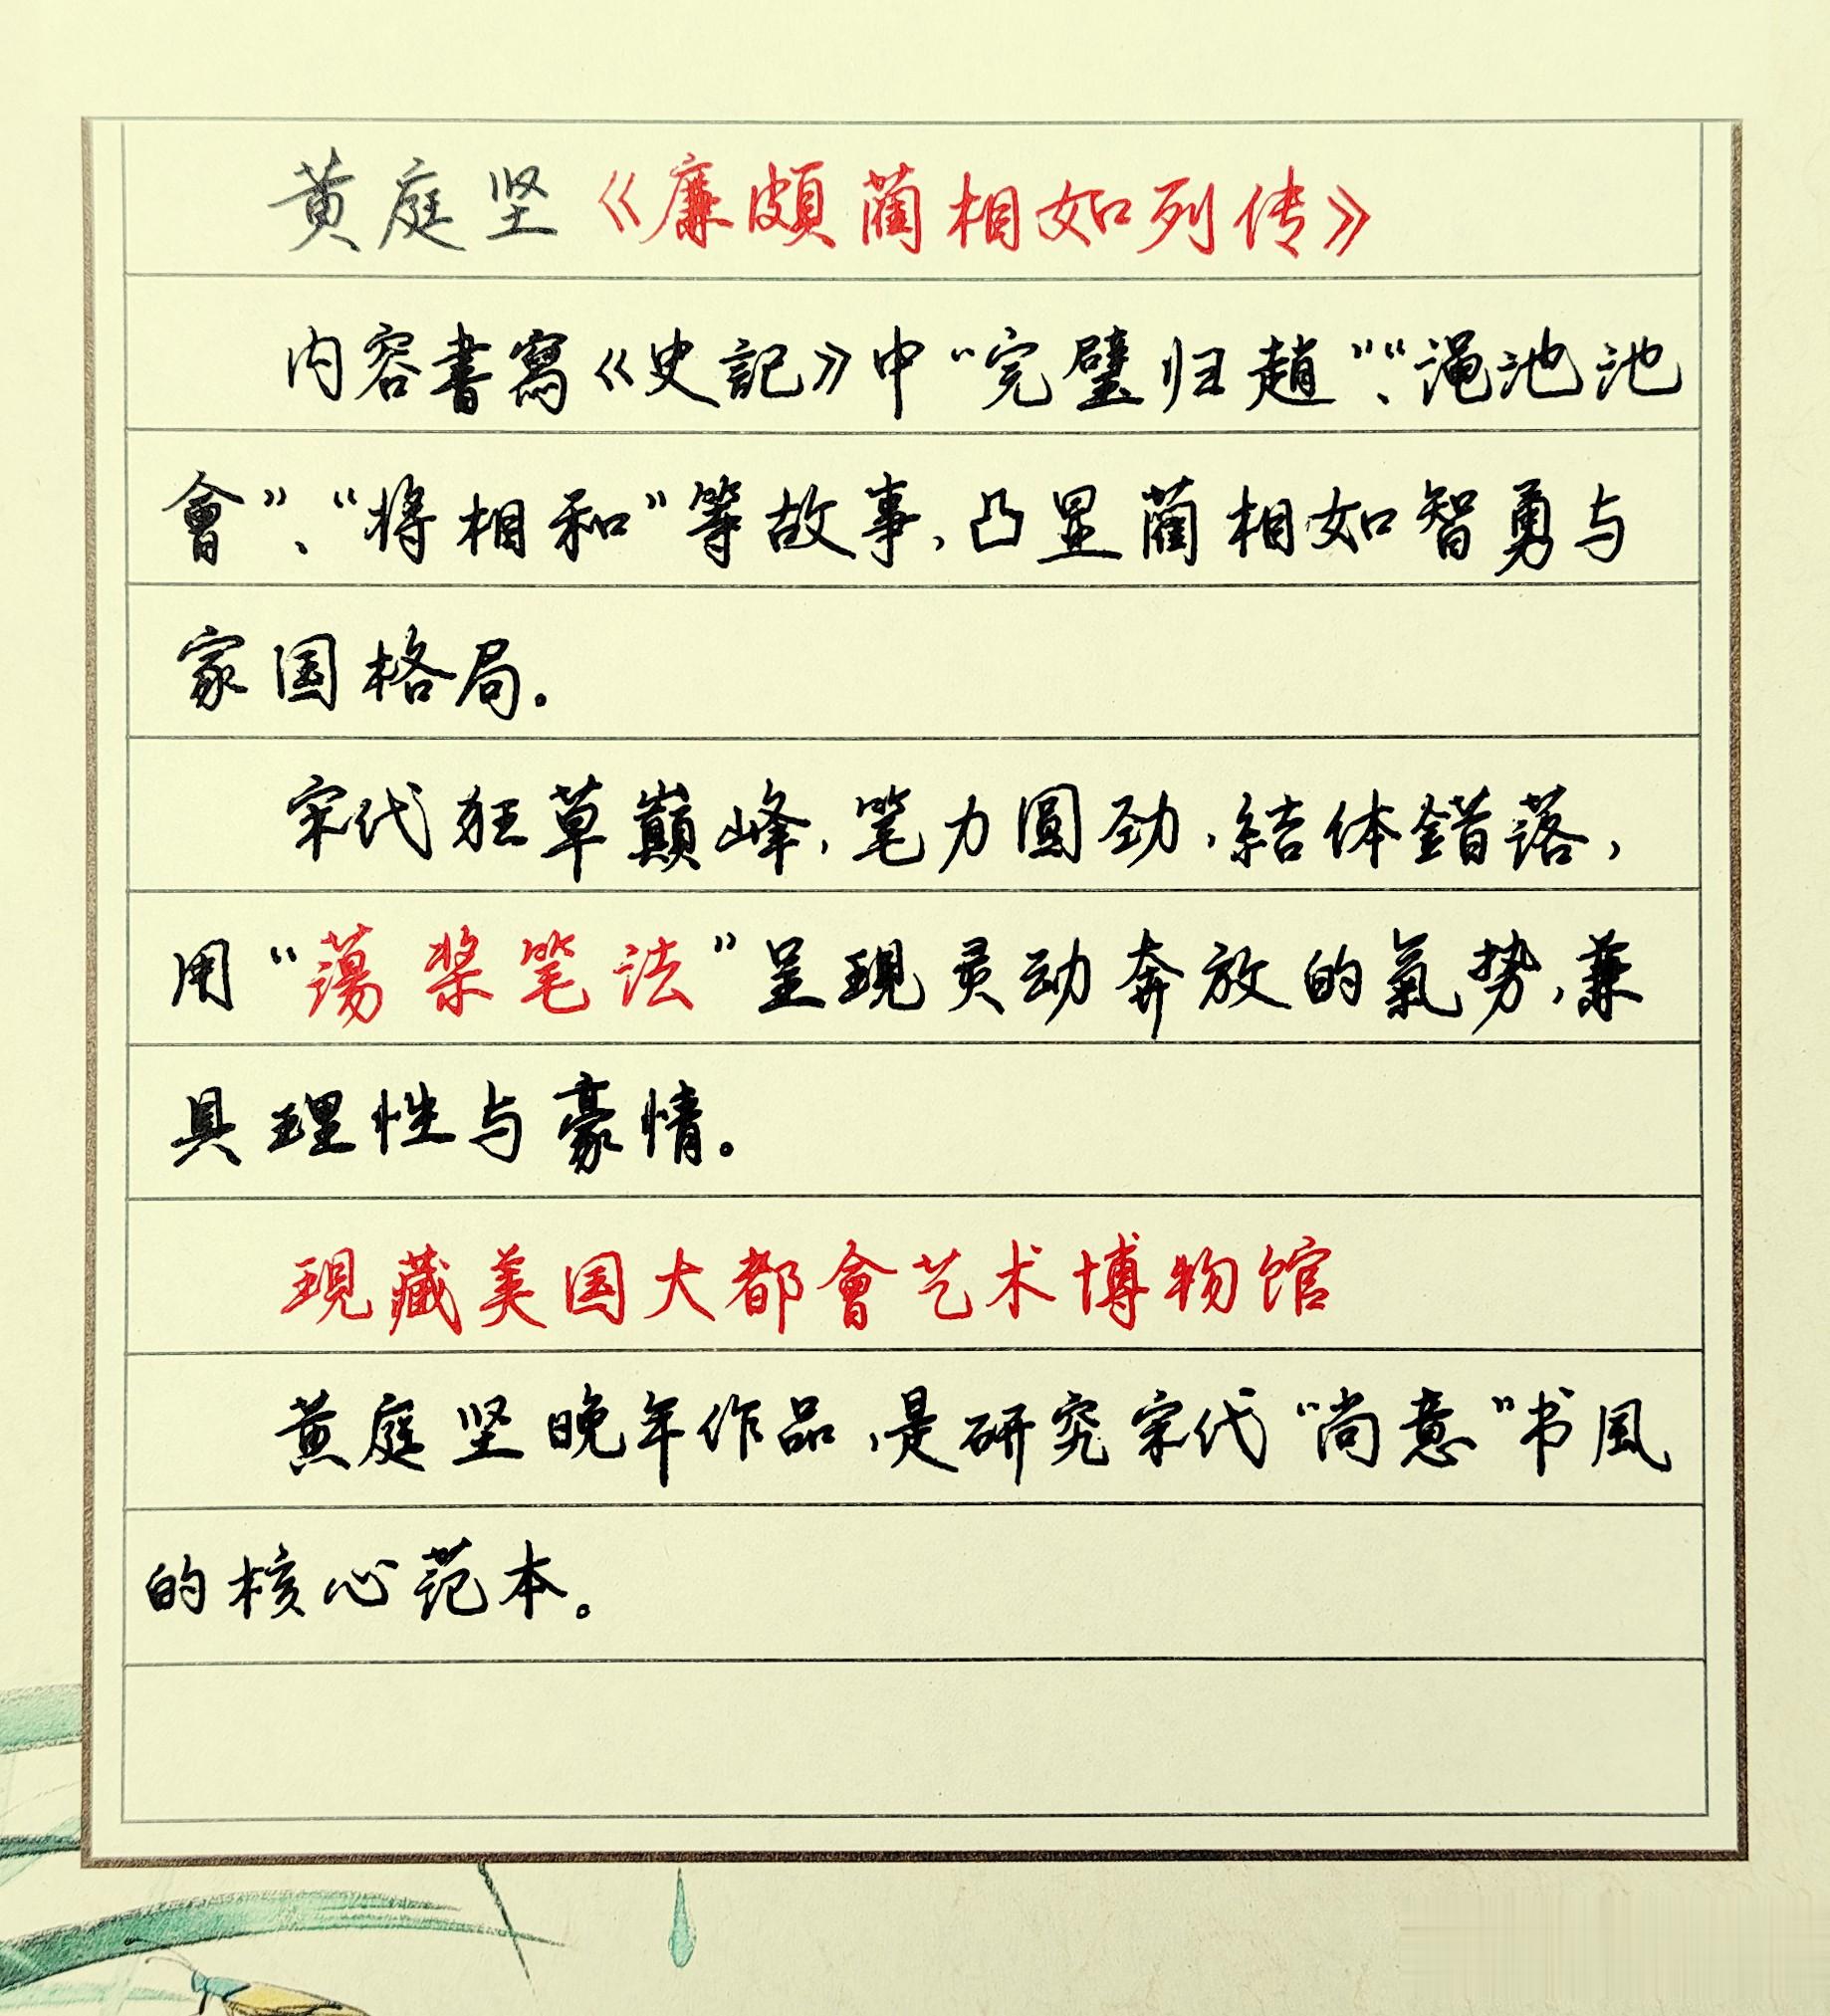 黄庭坚《廉頗藺相如列传》
内容書寫《史記》中“完璧归趙”、“渑池池
會”、“将相和”等故事,凸显藺相如智勇与
家国格局。
宋代狂草巔峰,笔力圓劲,結体錯落,
用“蕩桨笔法”呈現灵动奔放的氣势,兼
具理性与豪情。
現藏美国大都會艺术博物馆
黄庭坚晚年作品,是研究宋代“尚意”书風
的核心范本。